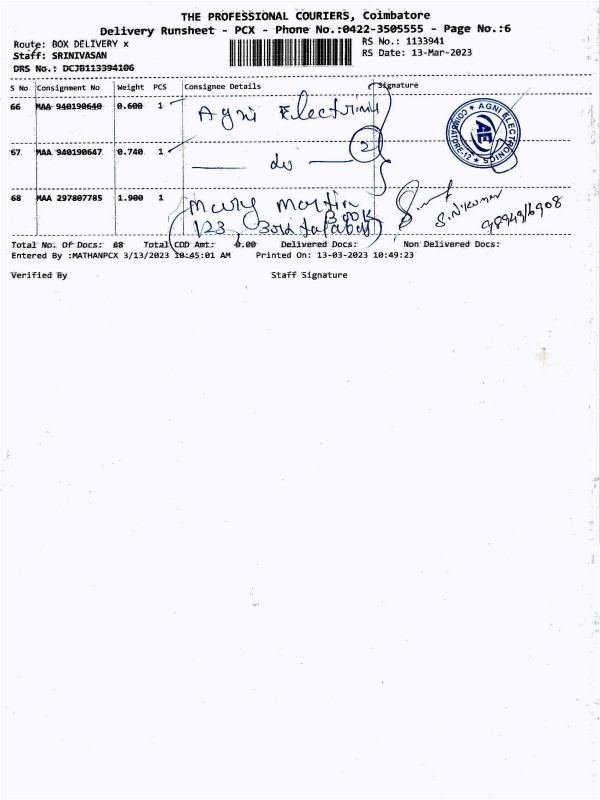 THE PROFESSIONAL COURIERS, Coimbatore
Delivery Runsheet - PCX - Phone No.:0422-3505555 - Page No.:6
Route: BOX DELIVERY x
RS No.: 1133941
Staff: SRINIVASAN
RS Date: 13-Mar-2023
DRS No.: DCJB113394106
S No Consignment No Weight PCS Consignee Details Signature
66 MAA 940190640 0.600 1 Agni Electrinis
AGNI ELECTRONICS COIMBATORE-12 AE
67 MAA 940190647 0.740 1 do 2
68 MAA 297807785 1.900 1 Mary Martin
Book
123 3rd
S.N. Kumar
9894916908
Total No. Of Docs: 68 Total COD Amt: 0.00 Delivered Docs: Non Delivered Docs:
Entered By :MATHANPCX 3/13/2023 10:45:01 AM Printed On: 13-03-2023 10:49:23
Verified By Staff Signature